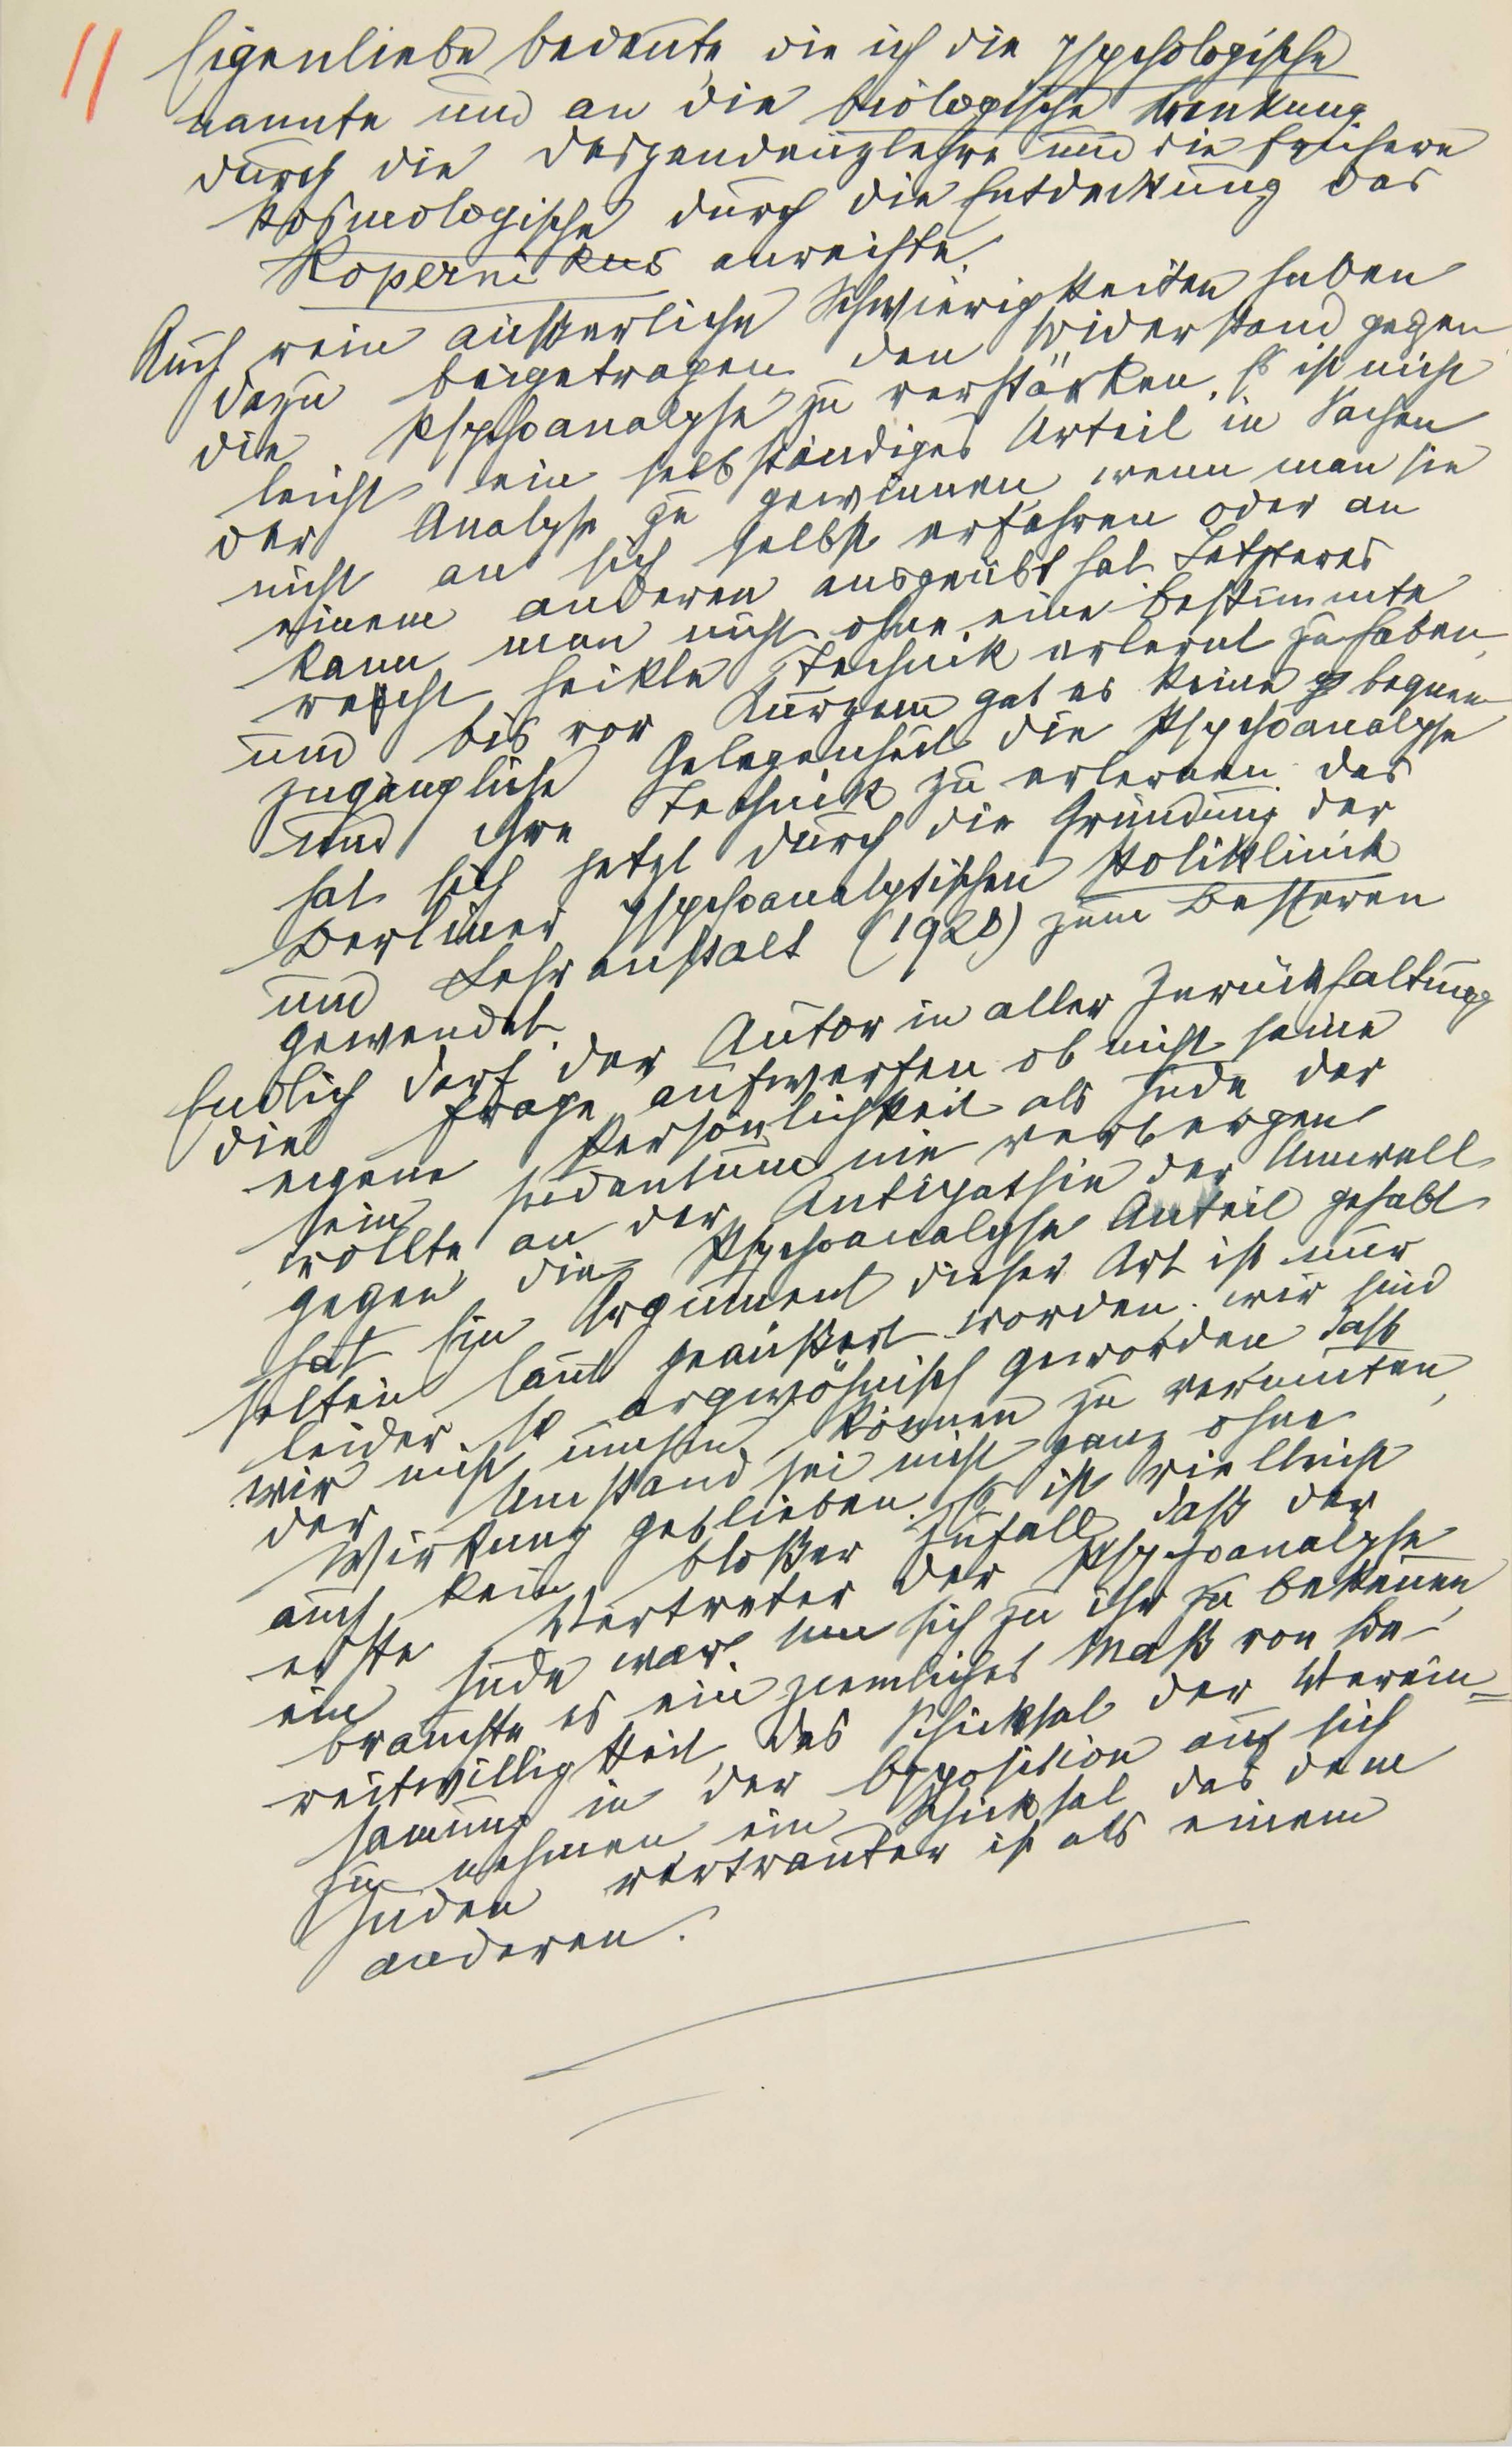 11
Eigenliebe bedeute, die ich die psychologische
nannte und an die biologische Krenkung
durch die Deszendenzlehre und die frühere
kosmologische durch die Entdeckung des
Kopernikus anreihte.
Auch rein äußerliche Schwierigkeiten haben
dazu beigetragen den Widerstand gegen
die Psychoanalyse zu verstärken. Es ist nicht
leicht ein selbständiges Urteil in Sachen
der Analyse zu gewinnen, wenn man sie
nicht an sich selbst erfahren oder an
einem anderen ausgeübt hat. Letzteres
kann man nicht, ohne eine bestimmte
recht heikle Technik erlernt zu haben,
und bis vor Kurzem gab es keine bequem
zugängliche Gelegenheit die Psychoanalyse
und ihre Technik zu erlernen. Das
hat sich jetzt durch die Gründung der
Berliner psychoanalytischen Poliklinik
und Lehranstalt (1920) zum Besseren
gewendet.
Endlich darf der Autor in aller Zurückhaltung
die Frage aufwerfen ob nicht seine
eigene Persönlichkeit als Jude der
sein Judentum nie verbergen
wollte, an der Antipathie der Umwelt
gegen die Psychoanalyse Anteil gehabt
hat. Ein Argument dieser Art ist nur
selten laut geäußert worden. wir sind
leider so argwöhnisch geworden daß
wir nicht umhin können zu vermuten,
der Umstand sei nicht ganz ohne
Wirkung geblieben. Es ist vielleicht
auch kein bloßer Zufall, daß der
erste Vertreter der Psychoanalyse
ein Jude war. Um sich zu ihr zu bekennen,
brauchte es ein ziemliches Maß von Be-
reitwilligkeit, das Schicksal der Verein=
samung in der Opposition auf sich
zu nehmen ein Schicksal das dem
Juden vertrauter ist als einem
anderen.